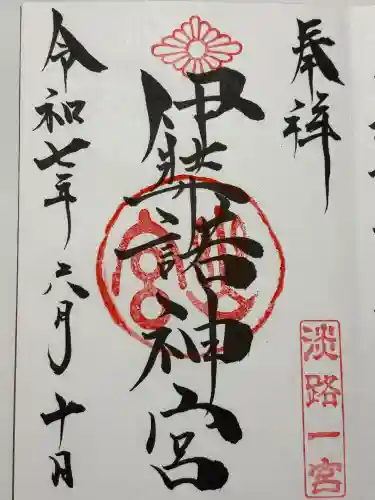 奉拝
伊弉諾神宮
令和七年六月十日
淡路一宮